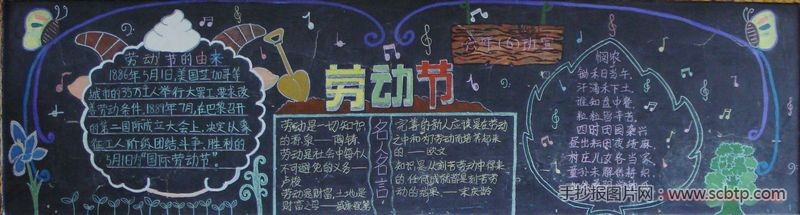 劳动节的由来
1886年5月1日,美国芝加哥等
城市的35万工人举行大罢工,要求改
善劳动条件,1889年7月,在巴黎召开
的第二国际成立大会上,决定以象
征工人阶级团结斗争,胜利的
5月1日为“国际劳动节”。
劳动节
劳动是一切知识
的源泉——陶铸
劳动是社会中每个人
不可避免的义务——
卢梭
劳动是财富之父,土地是
财富之母——
名人名言
完善的新人应该是在劳动
之中和为了劳动而培养起来
的——欧文
知识是从刻苦劳动中得来
的任何成就都是刻苦劳
动的结果——宋庆龄
六年(四)班宣
悯农
锄禾日当午,
汗滴禾下土。
谁知盘中餐,
粒粒皆辛苦。
四时田园杂兴
昼出耘田夜绩麻,
村庄儿女各当家。
童孙未解供耕织,
手抄报图片网:www.scbtp.com